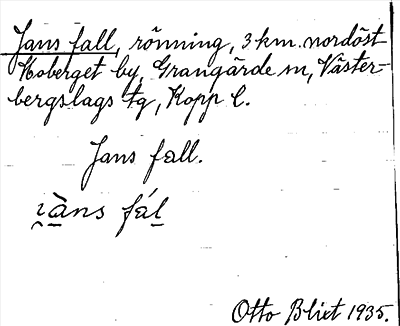 Jans fall, rönning, 3 km. nordöst
Hoberget by, Grangärde sn, Väster-
bergslags tg, Kopp l.
Jans fall.
fál
Otto Blixt 1935.